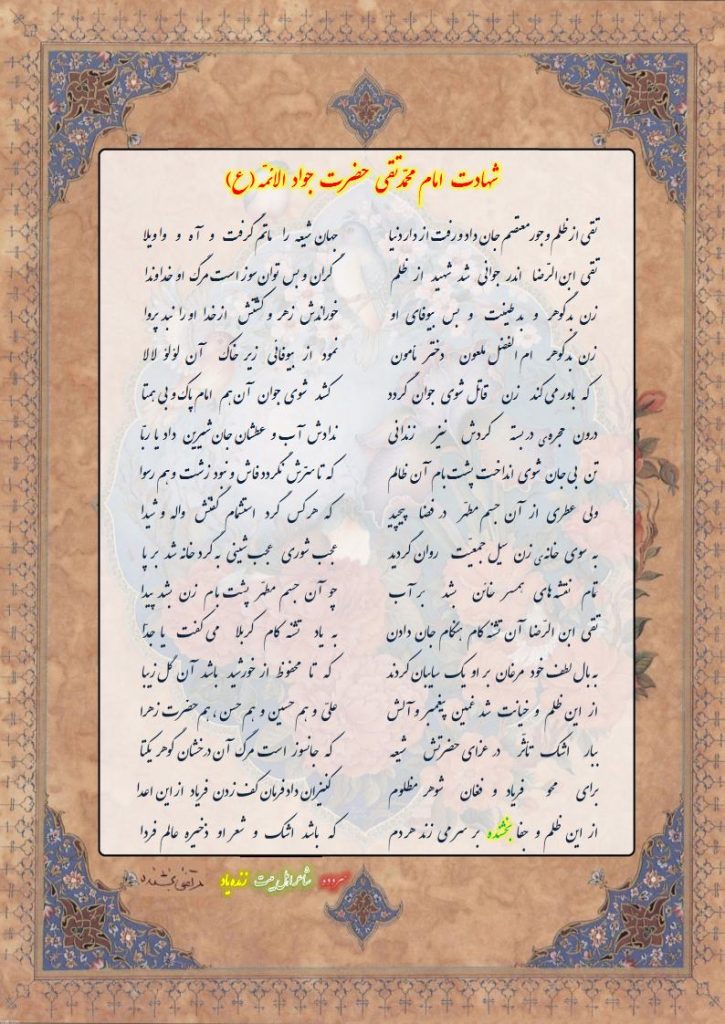 شهادت امام محمّدتقی حضرت جواد الائمّه (ع)
تقی از ظلم و جور معتصم جان داد و رفت از دار دنیا جهان شیعه را ماتم گرفت و آه و واویلا
تقی ابن الرّضا اندر جوانی شد شهید از ظلم گران و بس توان سوز است مرگ او خداوندا
زن بدگوهر و بدطینت و بس بیوفای او خوراندش زهر و کشتش از خدا او را نبد پروا
زن بدگوهر ام الفضل ملعون دختر مأمون نمود از بیوفائی زیر خاک آن لؤلؤ لالا
که باور می کند زن قاتل شوی جوان گردد کشد شوی جوان آن هم امام پاک و بی همتا
درون حجره‌ی دربسته کردش نیز زندانی ندادش آب و عطشان جان شیرین داد یا ربّا
تن بی جان شوی انداخت پشت بام آن ظالم که تا سرّش نگردد فاش و نبود زشت و هم رسوا
ولی عطری از آن جسم مطهّر در فضا پیچید که هرکس گرد استشمام گفتش واله و شیدا
به سوی خانه‌ی زن سیل جمعیّت روان گردید عجب شوری عجب شینی به گرد خانه شد بر پا
تمام نقشه های همسر خائن بشد بر آب چو آن جسم مطهّر پشت بام زن بشد پیدا
تقی ابن الرّضا آن تشنه کام هنگام جان دادن به یاد تشنه کام کربلا می گفت یا جدّا
به بال لطف خود مرغان بر او یک سایبان کردند که تا محفوظ از خورشید باشد آن گل زیبا
از این ظلم و خیانت شد غمین پیغمبر و آلش علیّ و هم حسین و هم حسن ، هم حضرت زهرا
ببار اشک تأثّر در عزای حضرتش شیعه که جانسوز است مرگ آن درخشان گوهر یکتا
برای محو فریاد و فغان شوهر مظلوم کنیزان داد فرمان کف زدن فریاد از این اعدا
از این ظلم و جفا بخشنده بر سر می زند هر دم که باشد اشک و شعر او ذخیره عالم فردا
سروده شاعر اهل بیت زنده یاد